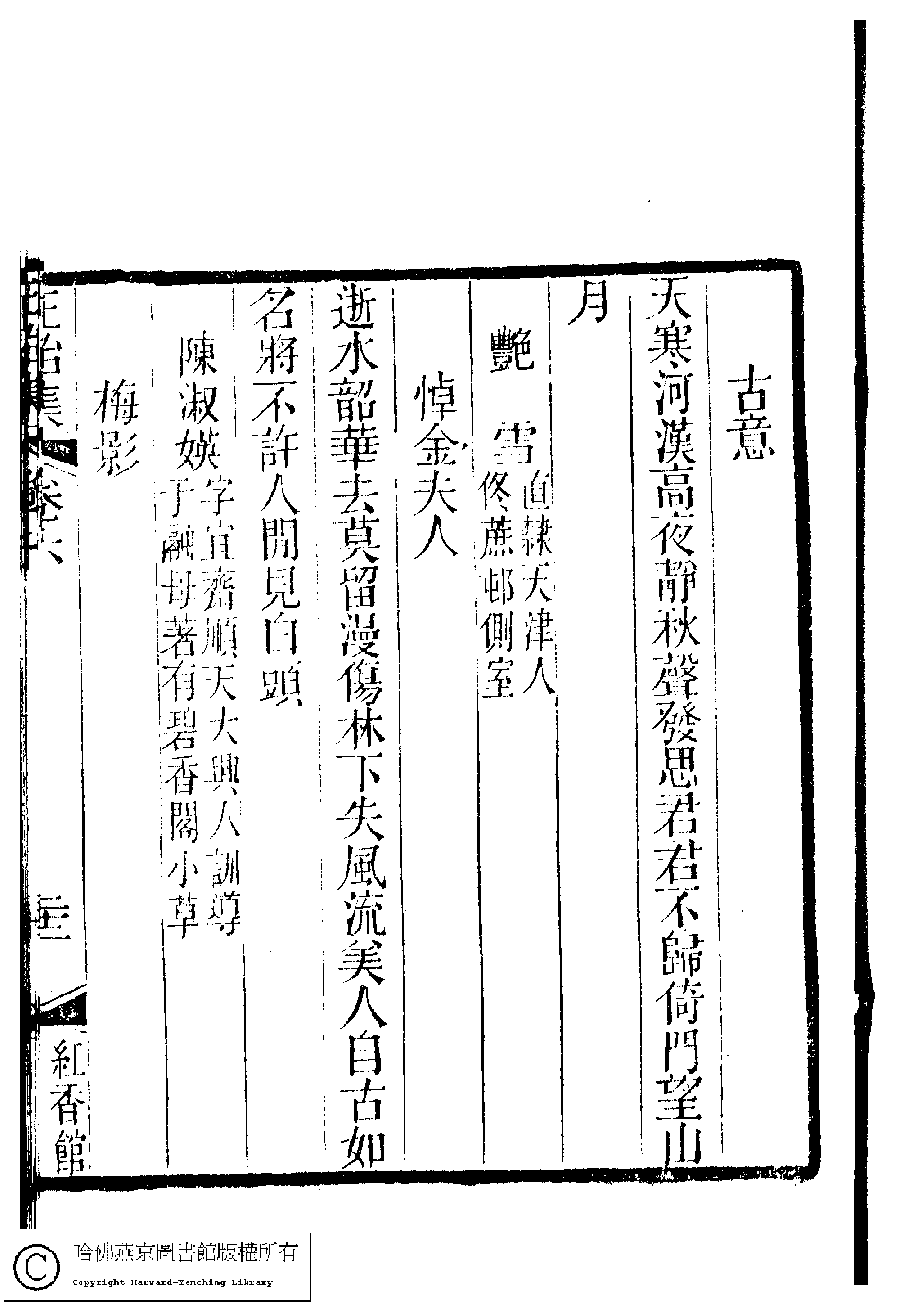 古意
天寒河漢高夜靜秋聲發思君君不歸倚門望山
月
艷雪 直隸天津人
佟蔗邨側室
悼金夫人
逝水韶華去莫留漫傷林下失風流美人自古如
名將不許人間見白頭
陳淑媖 字宜齋順天大興人訓導
于融母著有碧香閣小草
梅影
正始集 卷六
紅香館
哈佛燕京圖書館版權所有
Copyright Harvard-Yenching Library